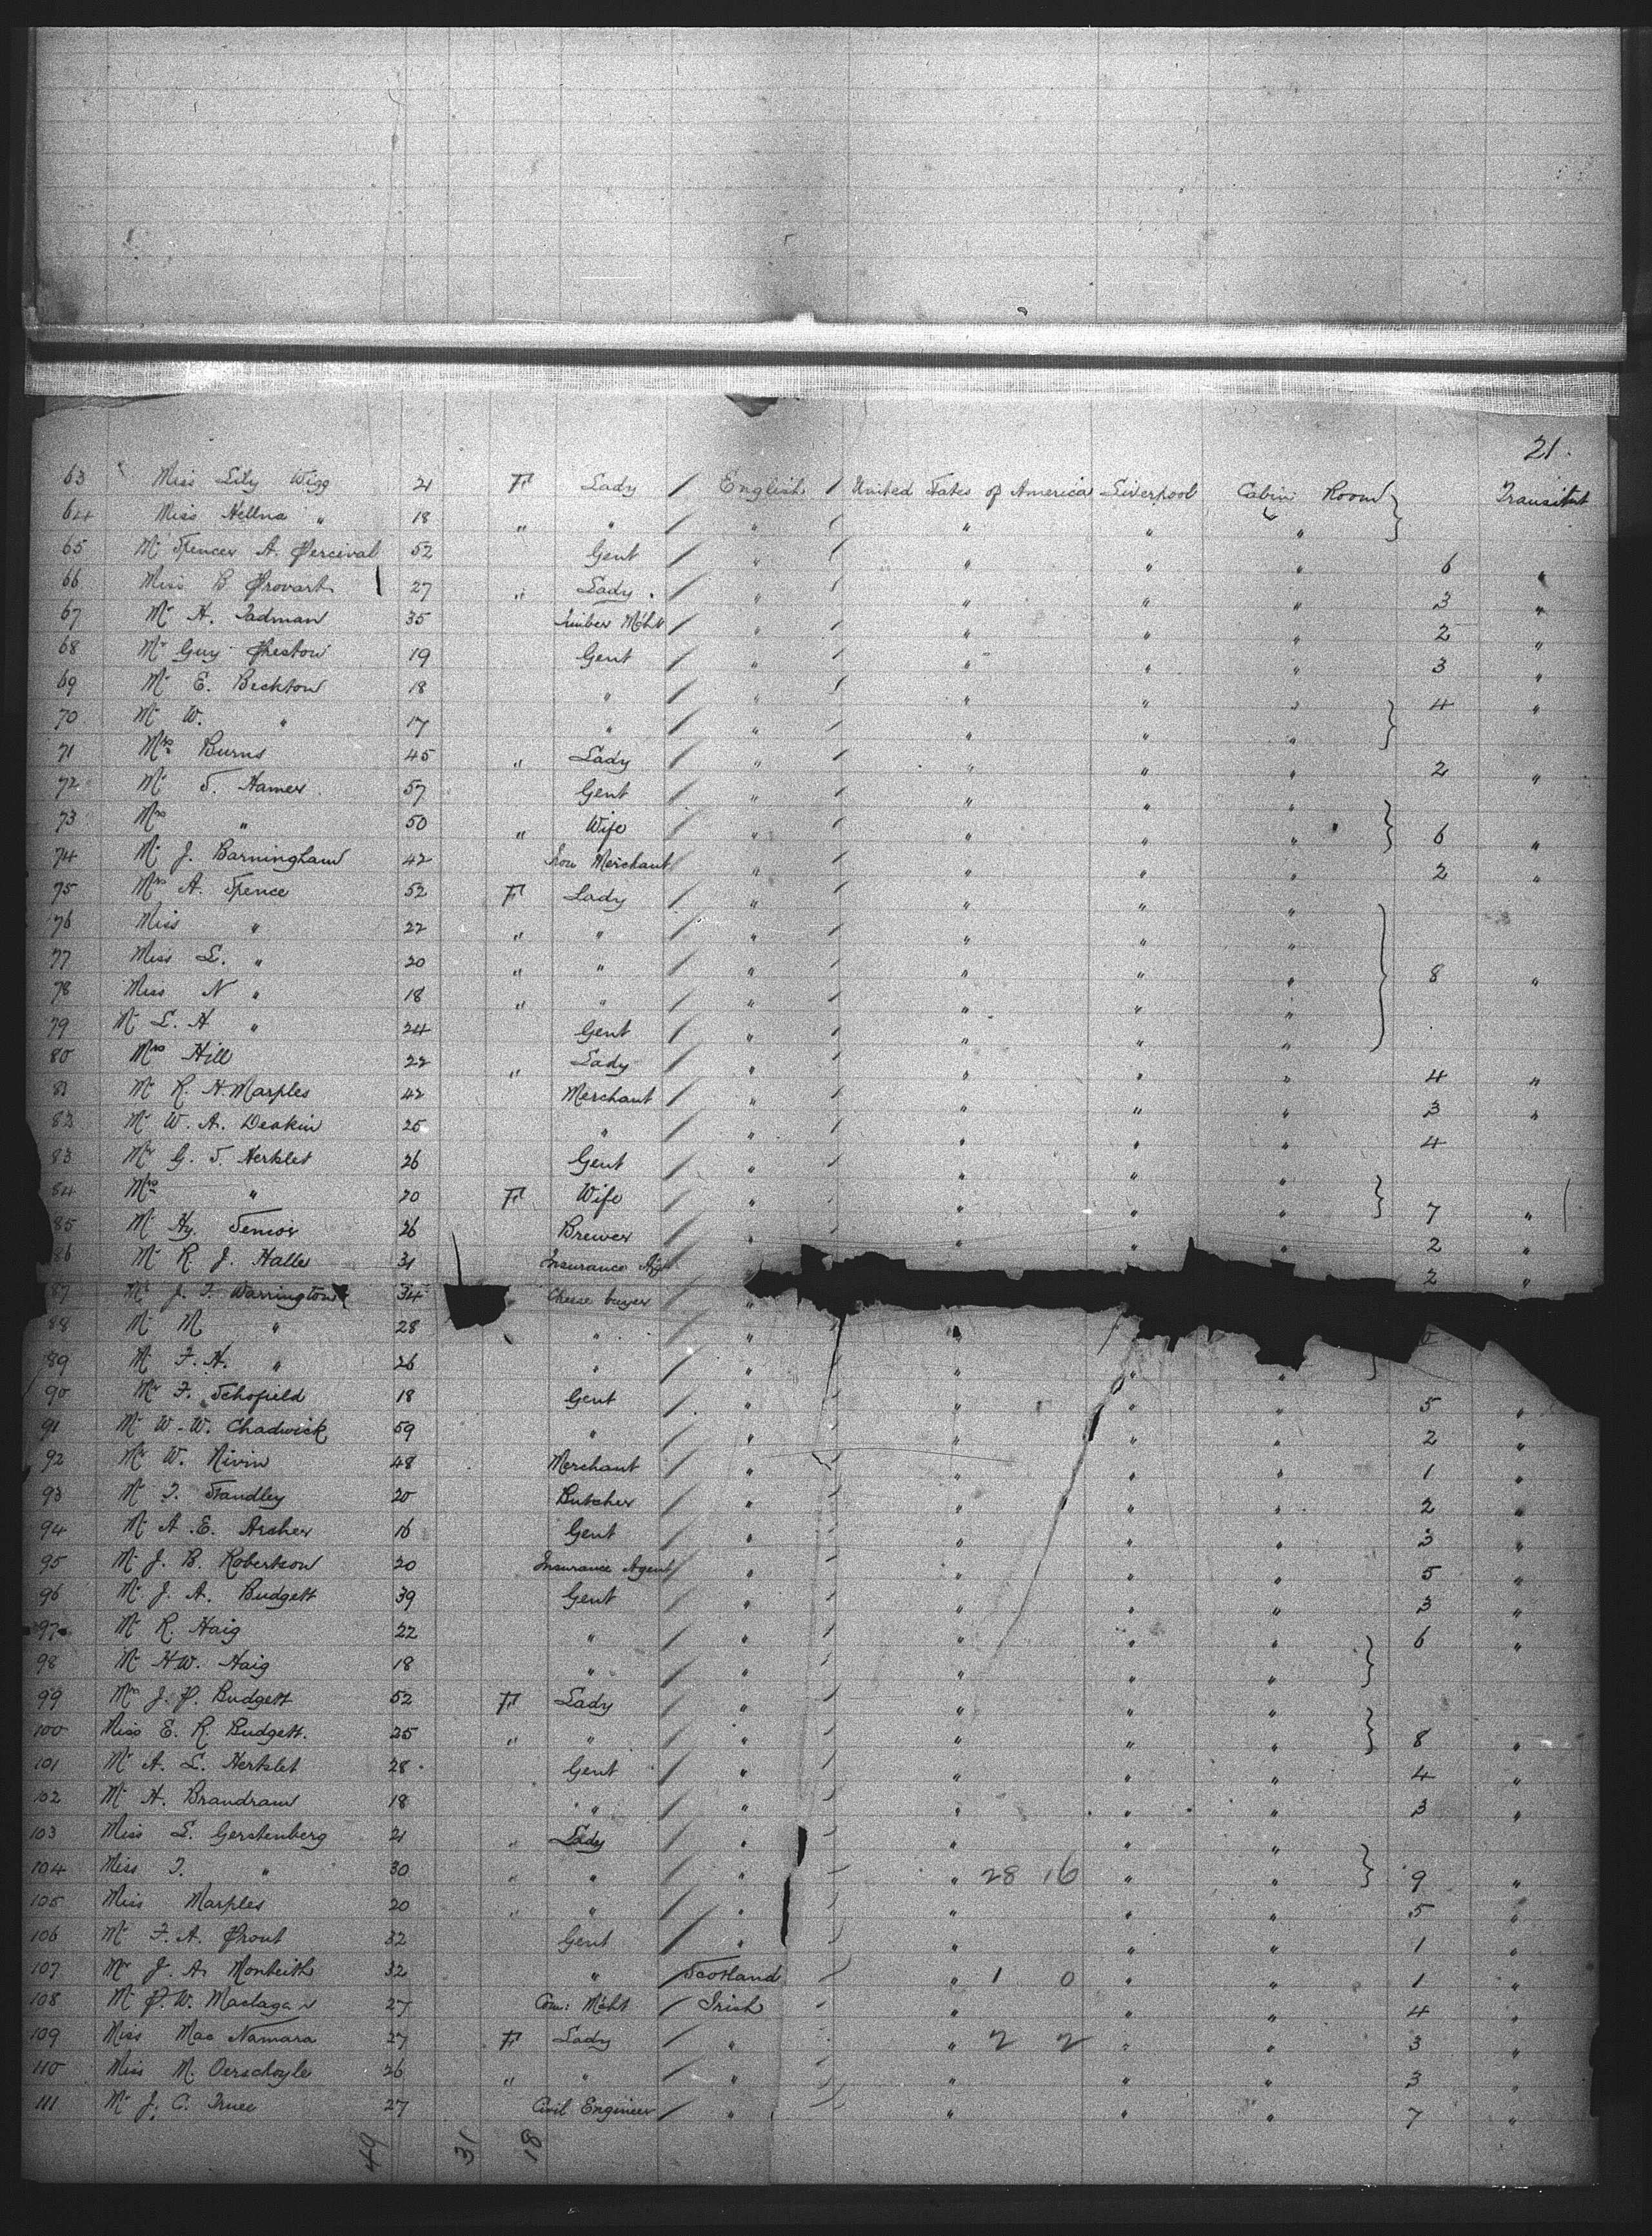 21.
63 Miss Lily Wigg 21 F Lady / English / United States of America Liverpool Cabin Room } Transitut
64 Miss Hellna " 18 " " / " / " " "
65 Mr Spencer A. Percival 52 Gent / " / " " " 6 "
66 Miss B Provart 27 " Lady / " / " " " 3 "
67 Mr H. Tadman 35 Timber Mcht / " / " " " 2 "
68 Mr Guy Preston 19 Gent / " / " " " 3 "
69 Mr E. Beckton 18 " / " / " " " 4 "
70 Mr W. " 17 " / " / " " " }
71 Mrs Burns 45 " Lady / " / " " " 2 "
72 Mr T. Hamer 57 Gent / " / " " "
73 Mrs " 50 " Wife / " / " " " } 6 "
74 Mr J. Barningham 42 Iron Merchant / " / " " " 2 "
75 Mrs A. Spence 52 F Lady / " / " " "
76 Miss " 22 " " / " / " " "
77 Miss L. " 20 " " / " / " " " } 8 "
78 Miss N " 18 " " / " / " " "
79 Mr L. H " 24 Gent / " / " " "
80 Mrs Hill 22 " Lady / " / " " " 4 "
81 Mr R. H. Marples 42 Merchant / " / " " " 3 "
82 Mr W. A. Deakin 25 " / " / " " " 4
83 Mr G. T. Herklet 26 Gent / " / " " "
84 Mrs " 20 F Wife / " / " " " } 7 "
85 Mr Hy. Senior 26 Brewer / " / " " " 2 "
86 Mr R. J. Halle 31 Insurance Agt 2 "
87 Mr J. T. Warrington 34 Cheese buyer / "
88 Mr M " 28 " / " / " "
89 Mr F. H. " 26 " / " / " " " }
90 Mr F. Schofield 18 Gent / " / " " " 5 "
91 Mr W. W. Chadwick 59 " / " / " " " 2 "
92 Mr W. Nivin 48 Merchant / " / " " " 1 "
93 Mr T. Standley 20 Butcher / " / " " " 2 "
94 Mr A. E. Archer 16 Gent / " / " " " 3 "
95 Mr J. B. Robertson 20 Insurance Agent / " / " " " 5 "
96 Mr J. A. Budgett 39 Gent / " / " " " 3 "
97 Mr R. Haig 22 " / " / " " " 6 "
98 Mr H.W. Haig 18 " / " / " " " }
99 Mrs J. P. Budgett 52 F Lady / " / " " "
100 Miss E. R. Budgett. 25 " " / " / " " " } 8 "
101 Mr A. L. Herklet 28 Gent / " / " " " 4 "
102 Mr H. Brandram 18 " / " / " " " 3 "
103 Miss L. Gerstenberg 21 " Lady / " / " " "
104 Miss T. " 30 " " / " / " 28 16 " " } 9 "
105 Miss Marples 20 " " / " / " " " 5 "
106 Mr F. A. Prout 32 Gent / " / " " " 1 "
107 Mr J. A. Monteith 32 " / Scotland / " 1 0 " " 1 "
108 Mr P. W. Maclagan 27 Com: Mcht / Irish / " " " 4 "
109 Miss Mac Namara 27 F Lady / " / " 2 2 " " 3 "
110 Miss M. Oerschoyle 26 " " / " / " " " 3 "
111 Mr J. C. Truee 27 Civil Engineer / " / " " " 7 "
49 31 18